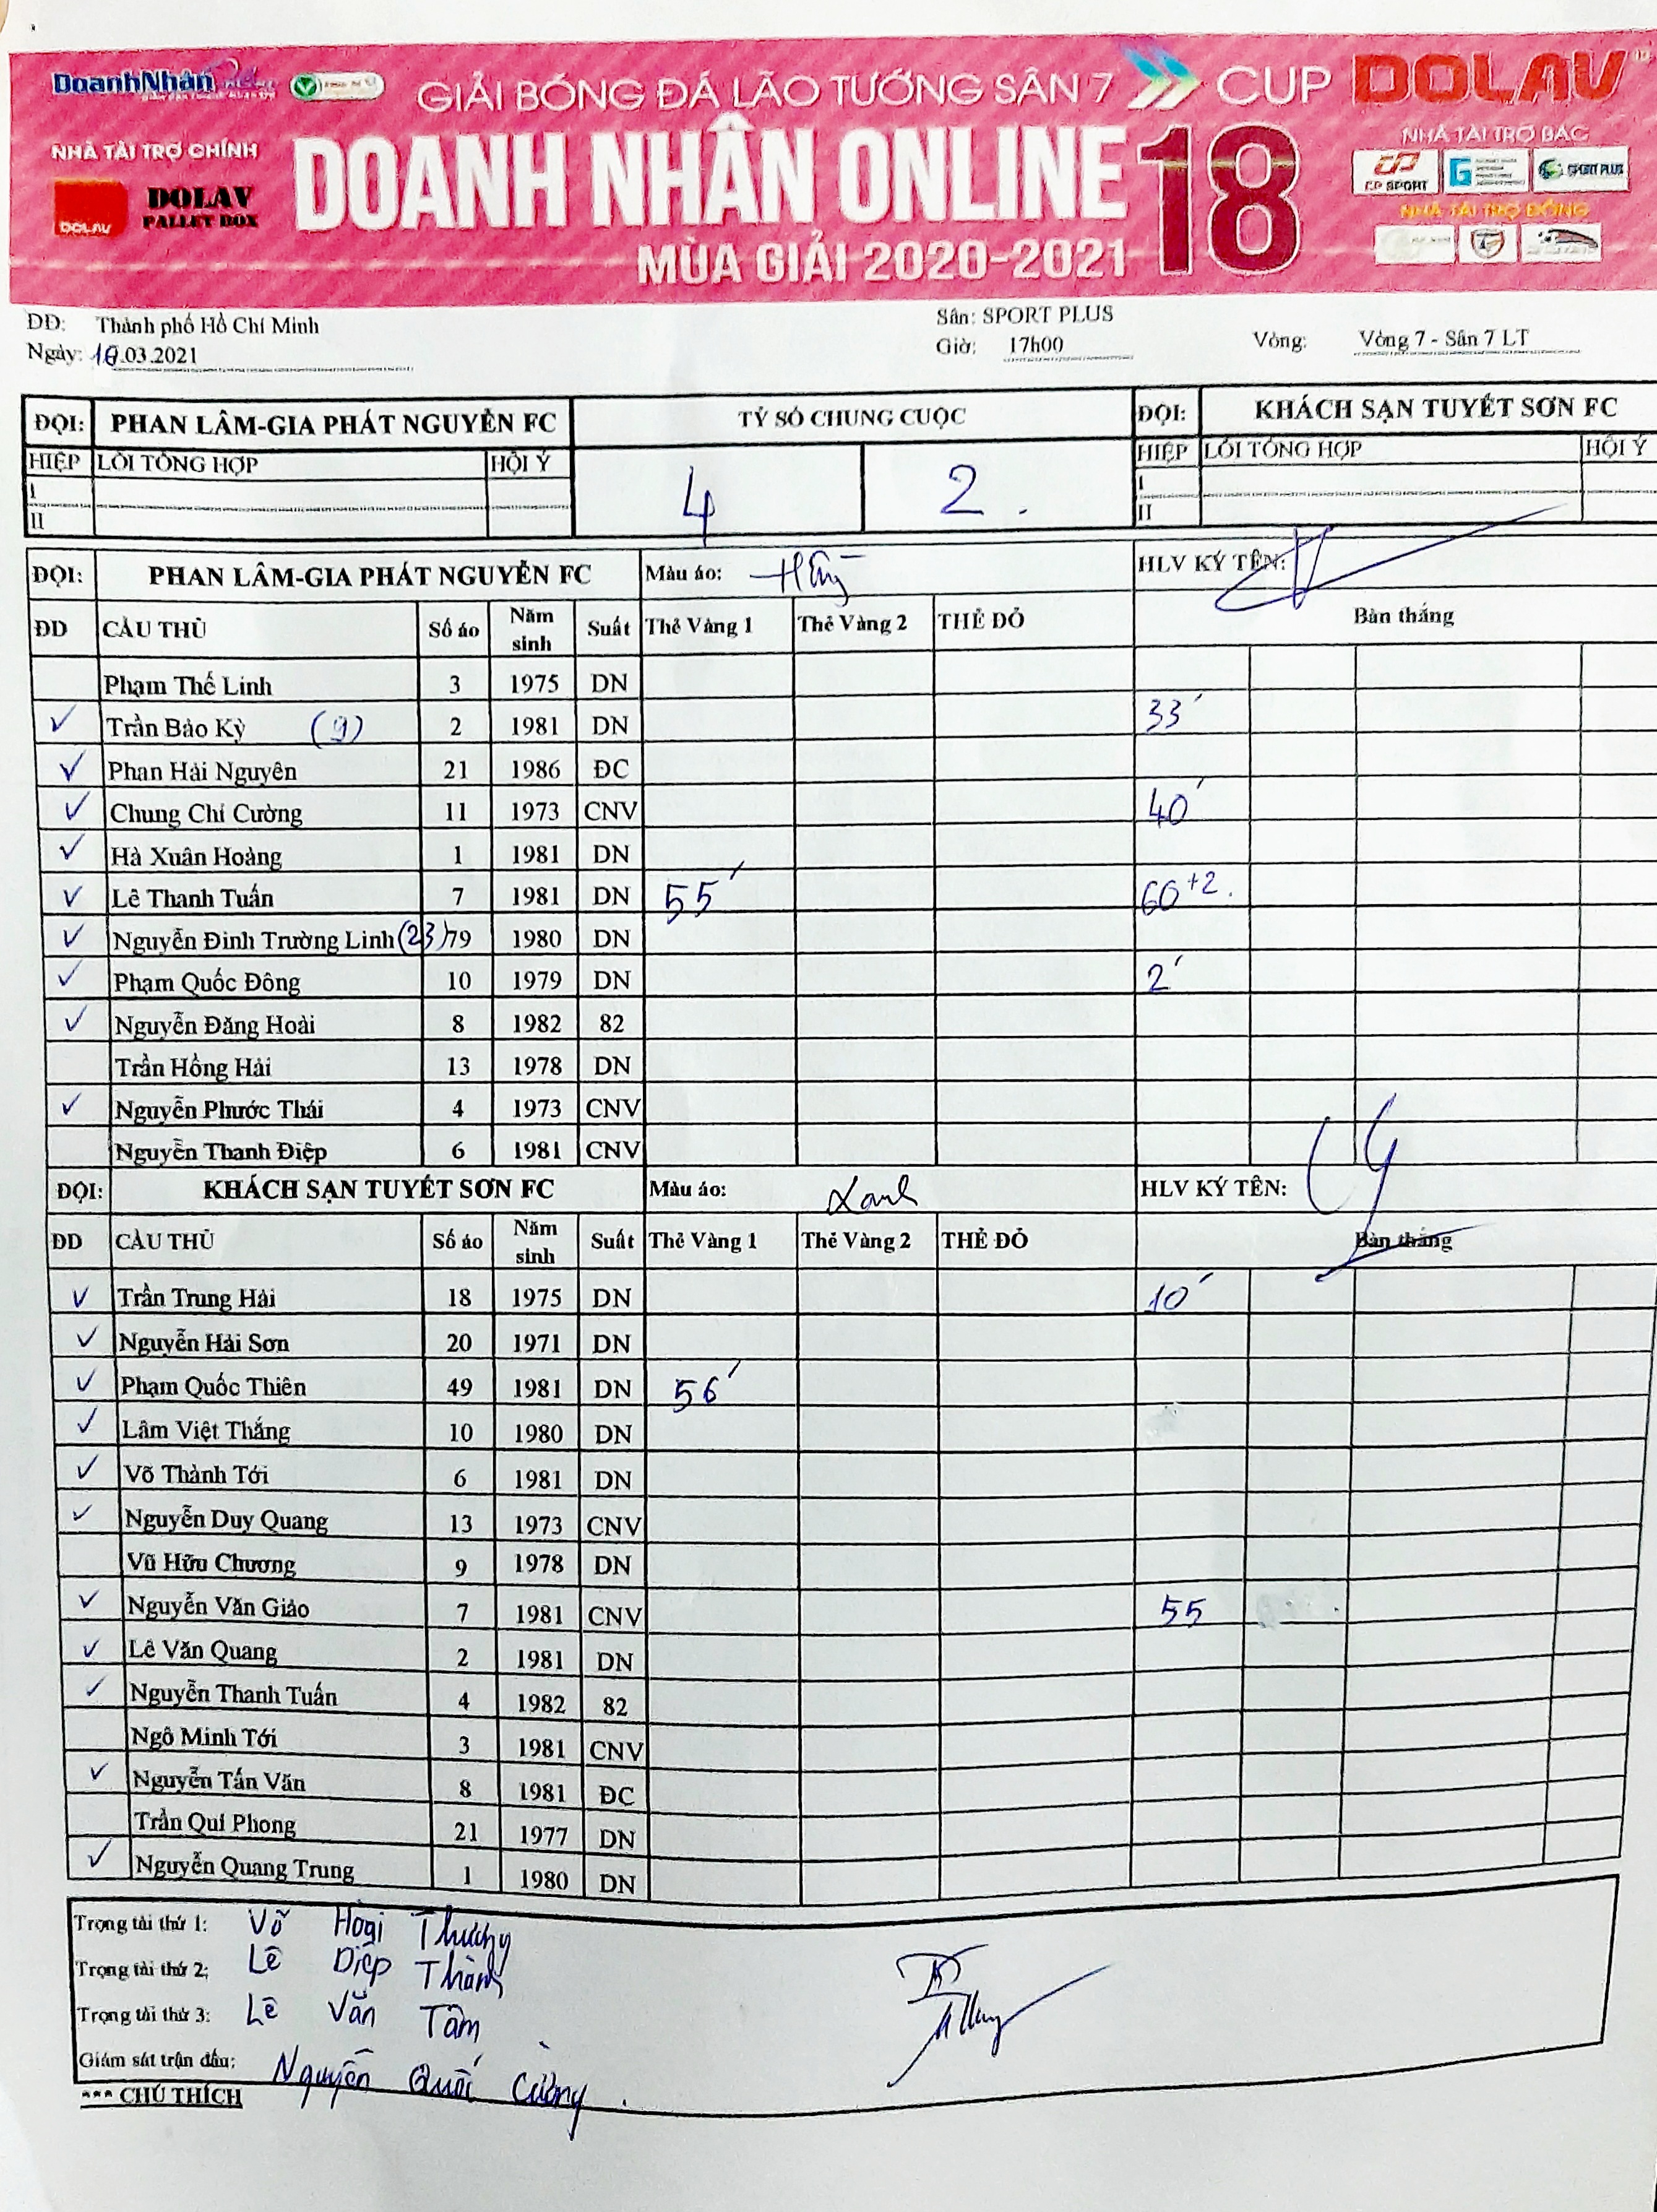 DoanhNhân
GIẢI BÓNG ĐÁ LÃO TƯỚNG SÂN 7 CUP DOLAV
NHÀ TÀI TRỢ CHÍNH
DOLAV
DOLAV
PALLET BOX
DOANH NHÂN ONLINE 18
MÙA GIẢI 2020-2021
NHÀ TÀI TRỢ BẠC
CP SPORT
SPORT PLUS
NHÀ TÀI TRỢ ĐỒNG
ĐD: Thành phố Hồ Chí Minh Sân: SPORT PLUS
Ngày: 10.03.2021 Giờ: 17h00 Vòng: Vòng 7 - Sân 7 LT
ĐỘI: PHAN LÂM-GIA PHÁT NGUYỄN FC TỶ SỐ CHUNG CUỘC ĐỘI: KHÁCH SẠN TUYẾT SƠN FC
HIỆP LỖI TỔNG HỢP HỘI Ý 4 2 . HIỆP LỖI TỔNG HỢP HỘI Ý
I I
II II
ĐỘI: PHAN LÂM-GIA PHÁT NGUYỄN FC Màu áo: HLV KÝ TÊN:
ĐD CẦU THỦ Số áo Năm sinh Suất Thẻ Vàng 1 Thẻ Vàng 2 THẺ ĐỎ Bàn thắng
Phạm Thế Linh 3 1975 DN
✓ Trần Bảo Kỳ (9) 2 1981 DN 33'
✓ Phan Hải Nguyên 21 1986 ĐC
✓ Chung Chí Cường 11 1973 CNV 40'
✓ Hà Xuân Hoàng 1 1981 DN
✓ Lê Thanh Tuấn 7 1981 DN 55' 60+2.
✓ Nguyễn Đinh Trường Linh (23) 79 1980 DN
✓ Phạm Quốc Đông 10 1979 DN 2'
✓ Nguyễn Đăng Hoài 8 1982 82
Trần Hồng Hải 13 1978 DN
✓ Nguyễn Phước Thái 4 1973 CNV
Nguyễn Thanh Điệp 6 1981 CNV
ĐỘI: KHÁCH SẠN TUYẾT SƠN FC Màu áo: Xanh HLV KÝ TÊN:
ĐD CẦU THỦ Số áo Năm sinh Suất Thẻ Vàng 1 Thẻ Vàng 2 THẺ ĐỎ Bàn thắng
✓ Trần Trung Hải 18 1975 DN 10'
✓ Nguyễn Hải Sơn 20 1971 DN
✓ Phạm Quốc Thiên 49 1981 DN 56'
✓ Lâm Việt Thắng 10 1980 DN
✓ Võ Thành Tới 6 1981 DN
✓ Nguyễn Duy Quang 13 1973 CNV
Vũ Hữu Chương 9 1978 DN
✓ Nguyễn Văn Giáo 7 1981 CNV 55
✓ Lê Văn Quang 2 1981 DN
✓ Nguyễn Thanh Tuấn 4 1982 82
Ngô Minh Tới 3 1981 CNV
✓ Nguyễn Tấn Văn 8 1981 ĐC
Trần Quí Phong 21 1977 DN
✓ Nguyễn Quang Trung 1 1980 DN
Trọng tài thứ 1: Võ Hoài Thương
Trọng tài thứ 2: Lê Diệp Thành
Trọng tài thứ 3: Lê Văn Tâm
Giám sát trận đấu: Nguyễn Quốc Cường .
*** CHÚ THÍCH